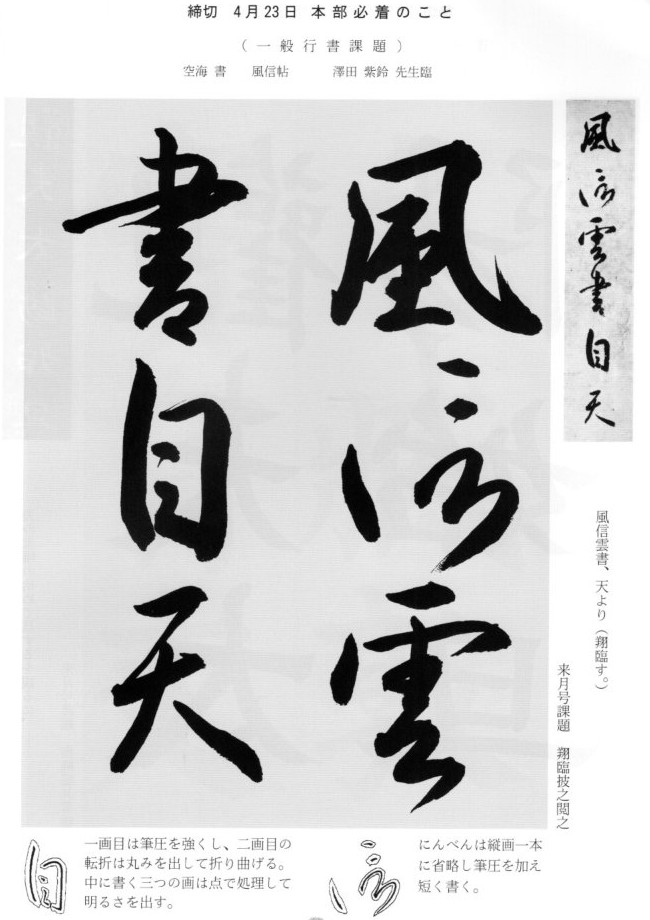 締切 4月23日 本部必着のこと
（一般行書課題）
空海 書 風信帖 澤田 紫鈴 先生臨
風信雲書自天
風信雲
書自天
風信雲書、天より（翔臨す。）
来月号課題 翔臨披之閲之
信
にんべんは縦画一本
に省略し筆圧を加え
短く書く。
自
一画目は筆圧を強くし、二画目の
転折は丸みを出して折り曲げる。
中に書く三つの画は点で処理して
明るさを出す。